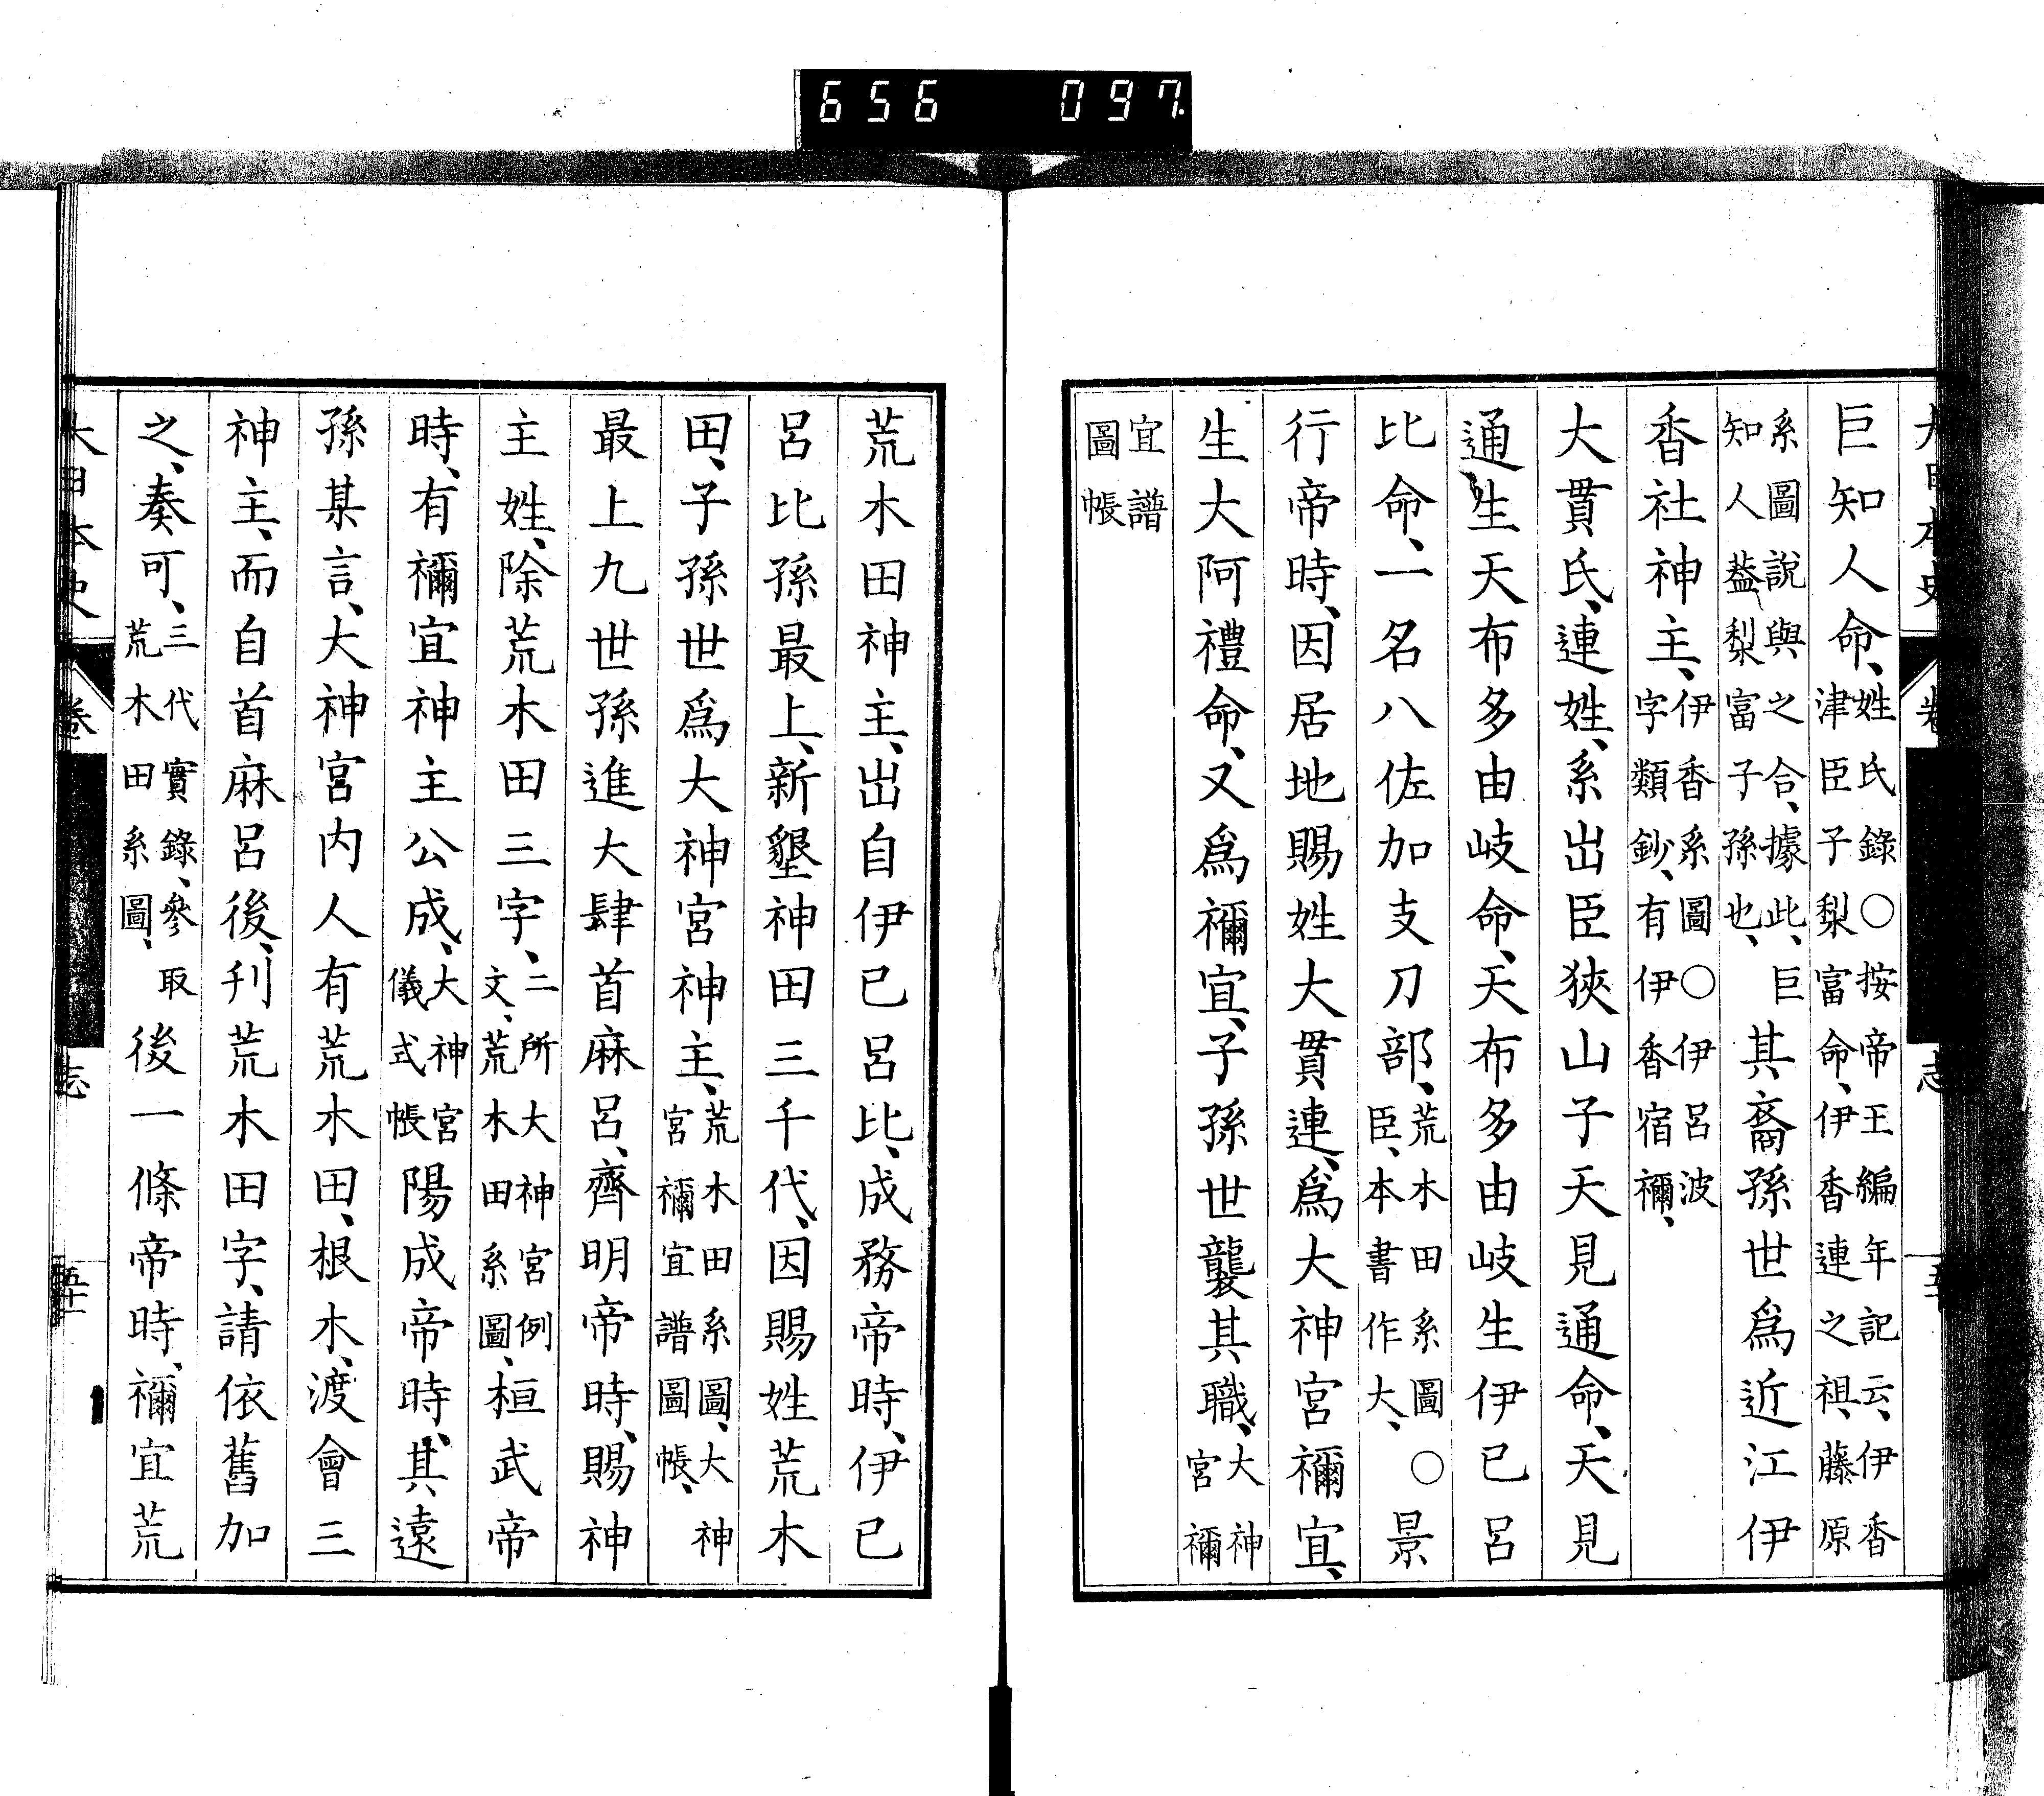 656 097
巨知人命、姓氏錄○按帝王編年記云、伊香
津臣子梨富命、伊香連之祖、藤原
系圖說與之合、據此、巨
知人蓋梨富子孫也、其裔孫世爲近江伊
香社神主、伊香系圖○伊呂波
字類鈔、有伊香宿禰、
大貫氏、連姓、系出臣狹山子天見通命、天見
通生天布多由岐命、天布多由岐生伊己呂
比命、一名八佐加支刀部、荒木田系圖○
臣、本書作大、景
行帝時、因居地賜姓大貫連、爲大神宮禰宜、
生大阿禮命、又爲禰宜、子孫世襲其職、大神
宮禰
宜譜
圖帳
荒木田神主、出自伊己呂比、成務帝時、伊己
呂比孫最上、新墾神田三千代、因賜姓荒木
田、子孫世爲大神宮神主、荒木田系圖、大神
宮禰宜譜圖帳、
最上九世孫進大肆首麻呂、齊明帝時、賜神
主姓、除荒木田三字、二所大神宮例
文、荒木田系圖、桓武帝
時、有禰宜神主公成、大神宮
儀式帳陽成帝時、其遠
孫某言、大神宮内人有荒木田、根木、渡會三
神主、而自首麻呂後、刋荒木田字、請依舊加
之、奏可、三代實錄、參取
荒木田系圖、後一條帝時、禰宜荒
大日本史 卷 志 五十一